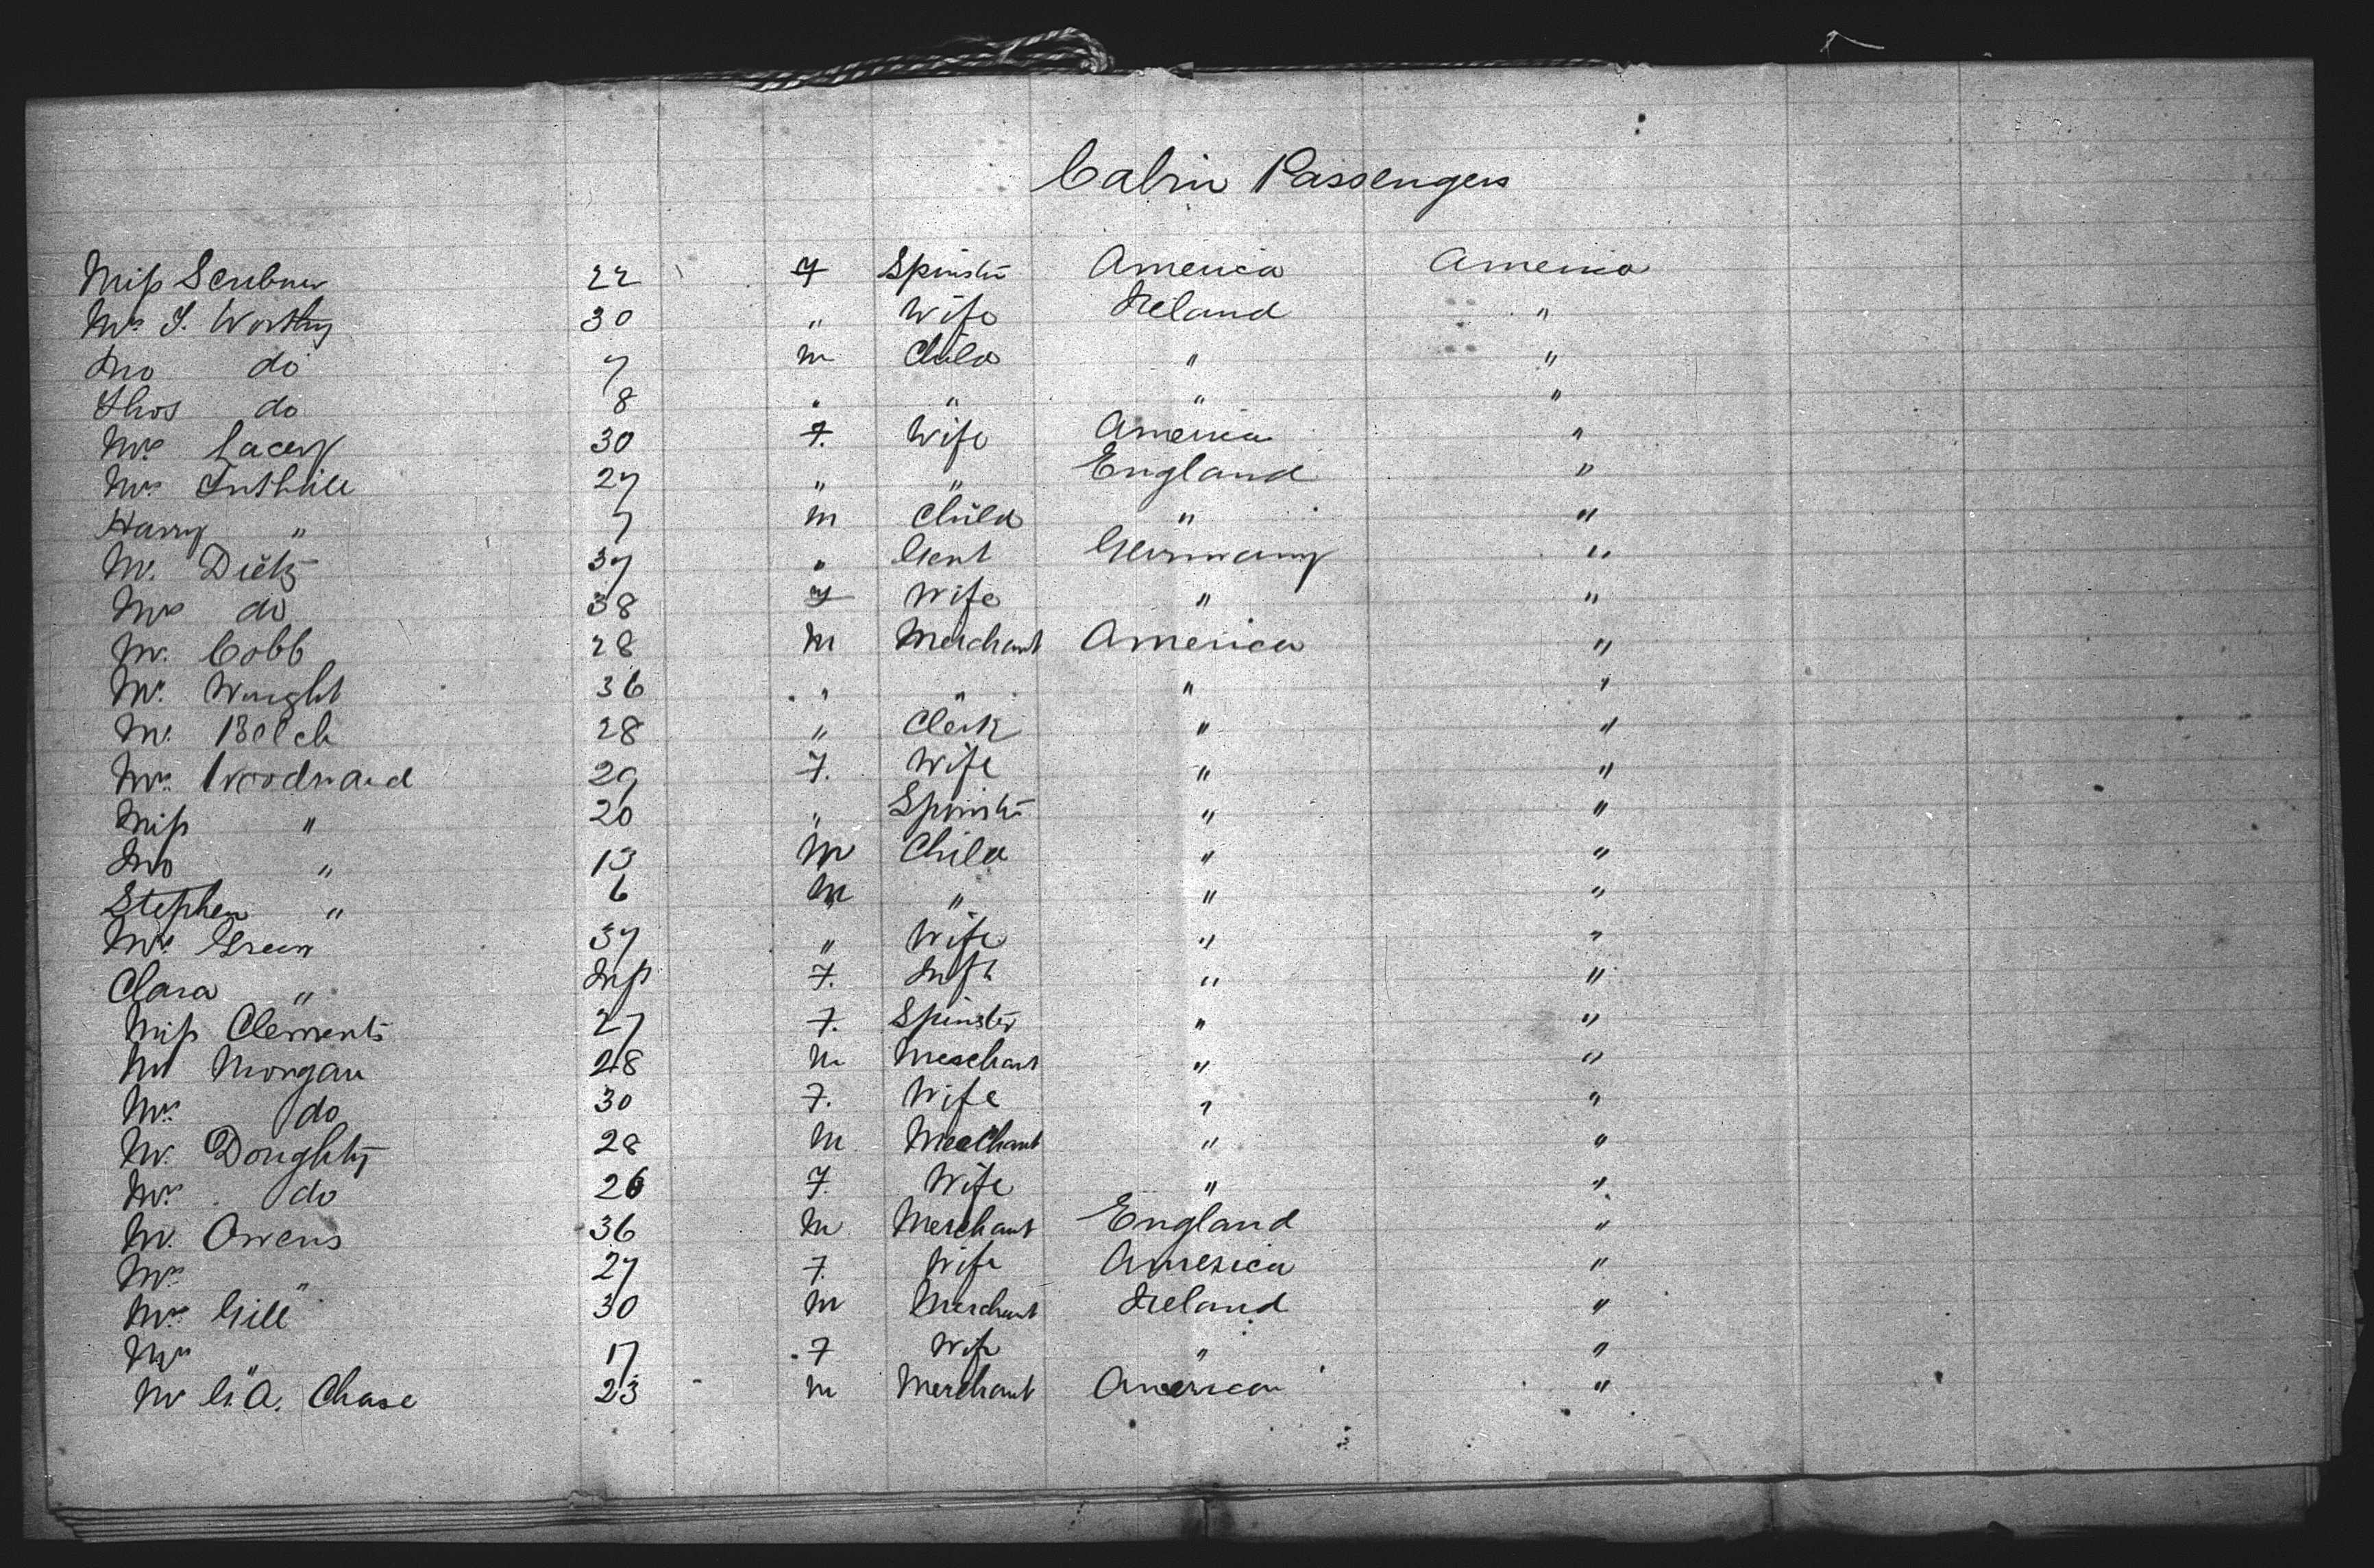 Cabin Passengers
Miss Scribner 22 F Spinster America America
Mrs S. Worthy 30 " Wife Ireland "
Jno do 7 m Child " "
Thos do 8 " " " "
Mrs Lacey 30 F. Wife America "
Mrs Tuthill 27 " " England "
Harry " 7 m Child " "
Mr. Dietz 37 " Gent Germany "
Mrs do 38 F Wife " "
Mr. Cobb 28 M Merchant America "
Mr. Wright 36 " " " "
Mr. Belch 28 " Clerk " "
Mrs. Woodward 29 F. Wife " "
Miss " 20 " Spinster " "
Jno " 13 M Child " "
Stephen " 6 M " " "
Mrs Green 37 " Wife " "
Clara " Inft F. Inft " "
Miss Clements 27 F. Spinster " "
Mr Morgan 28 M Merchant " "
Mrs do 30 F. Wife " "
Mr. Doughty 28 M Merchant " "
Mrs. do 26 F. Wife " "
Mr. Owens 36 M Merchant England "
Mrs " 27 F. Wife America "
Mr. Gill 30 M Merchant Ireland "
Mrs " 17 F Wife " "
Mr G. A. Chase 23 M Merchant America "